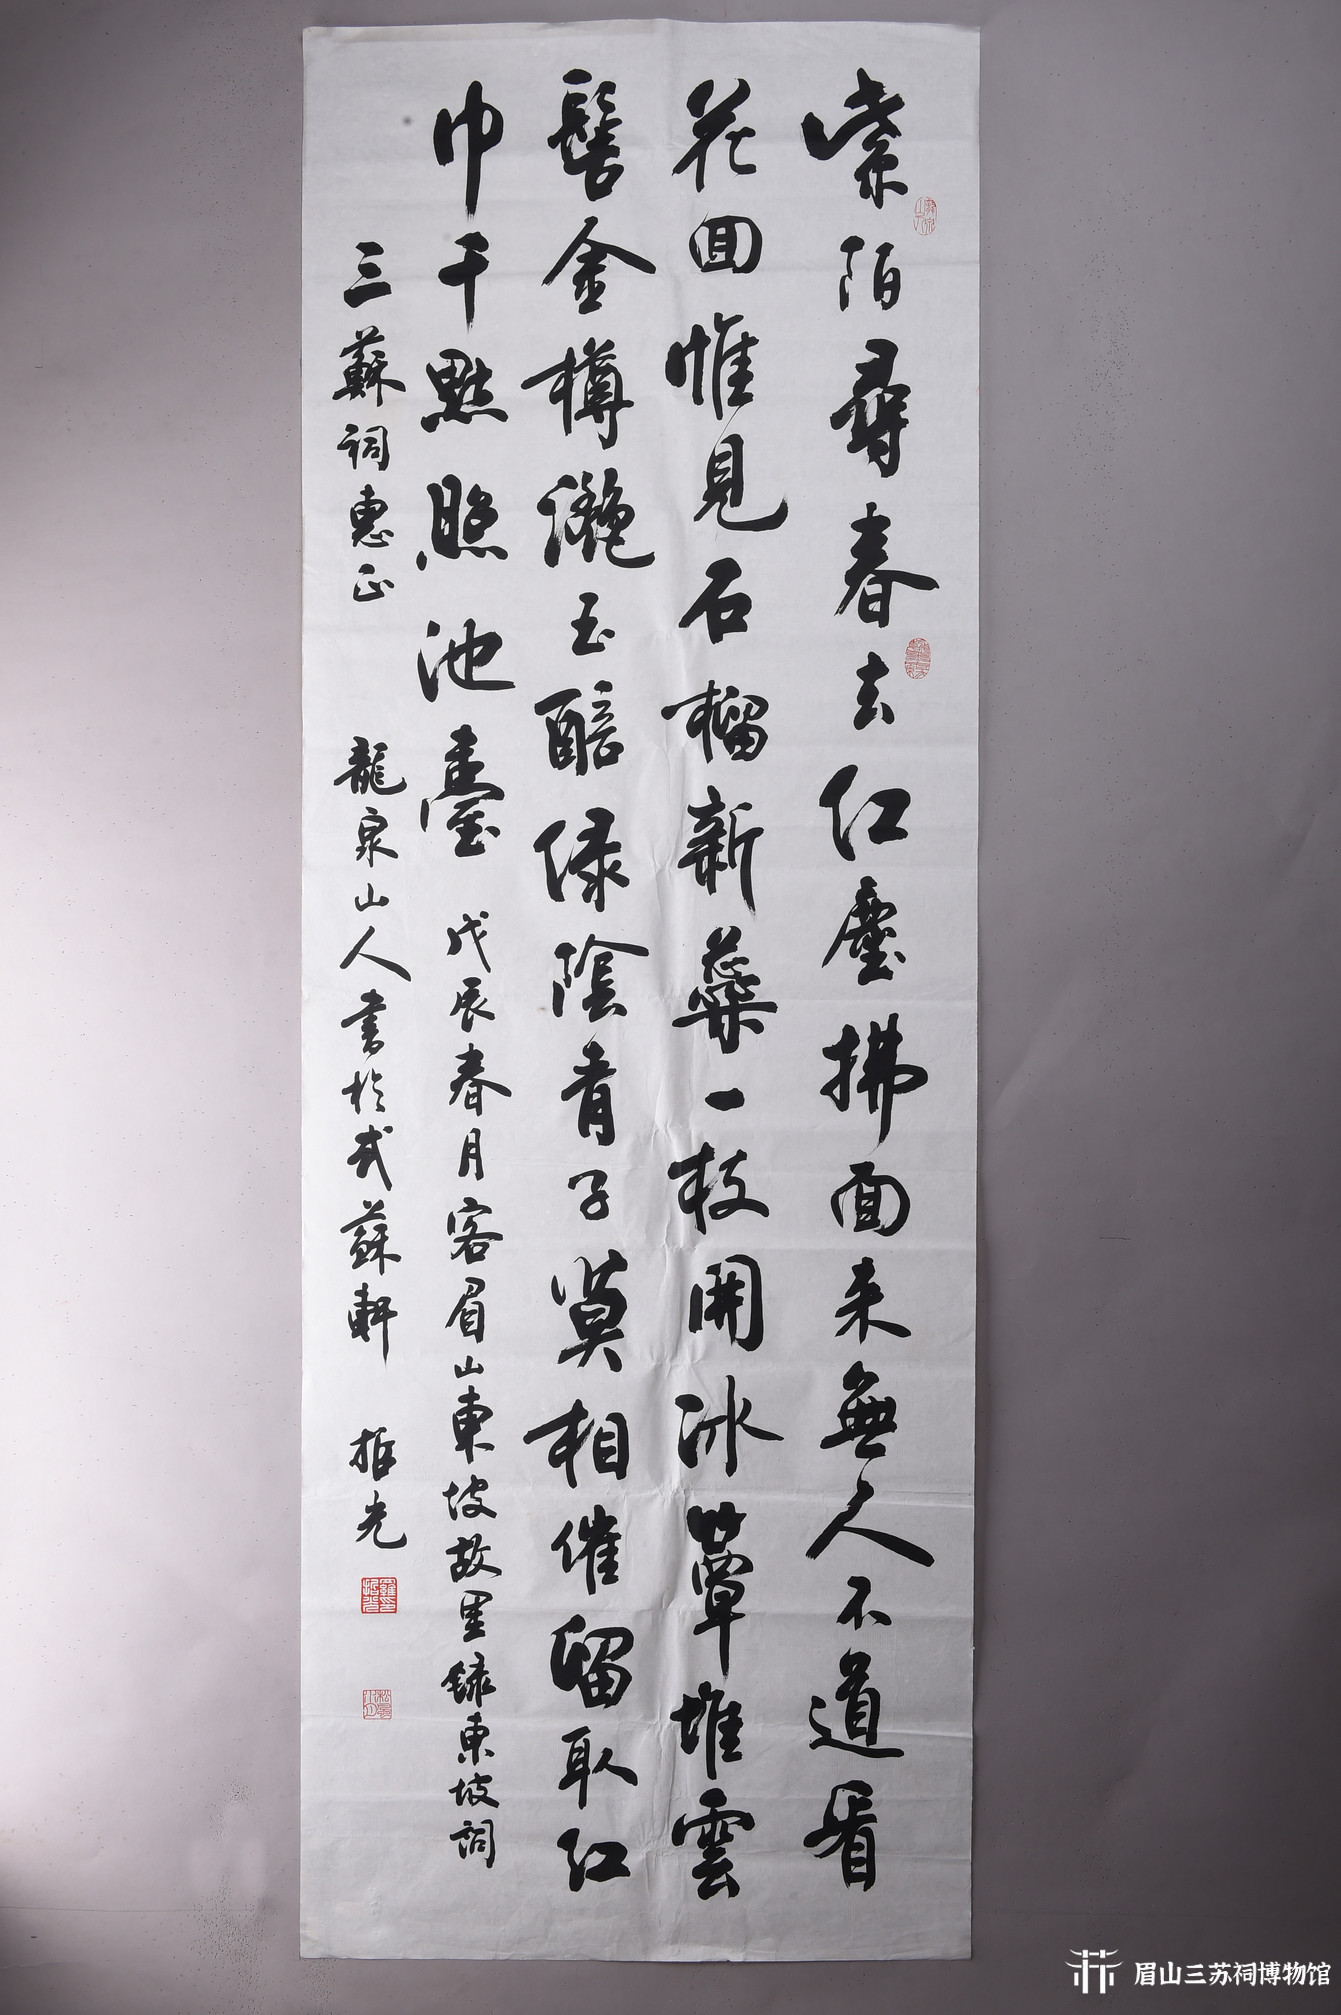 紫陌尋春去紅塵拂面来無人不道看
花回惟見石榴新蘂一枝開冰簟堆雲
髻金樽灩玉醅綠陰青子莫相催留取紅
巾千點照池臺 戊辰春月客眉山東坡故里錄東坡詞
三蘇祠惠正 龍泉山人書於蘇軒 哲光
眉山三苏祠博物馆